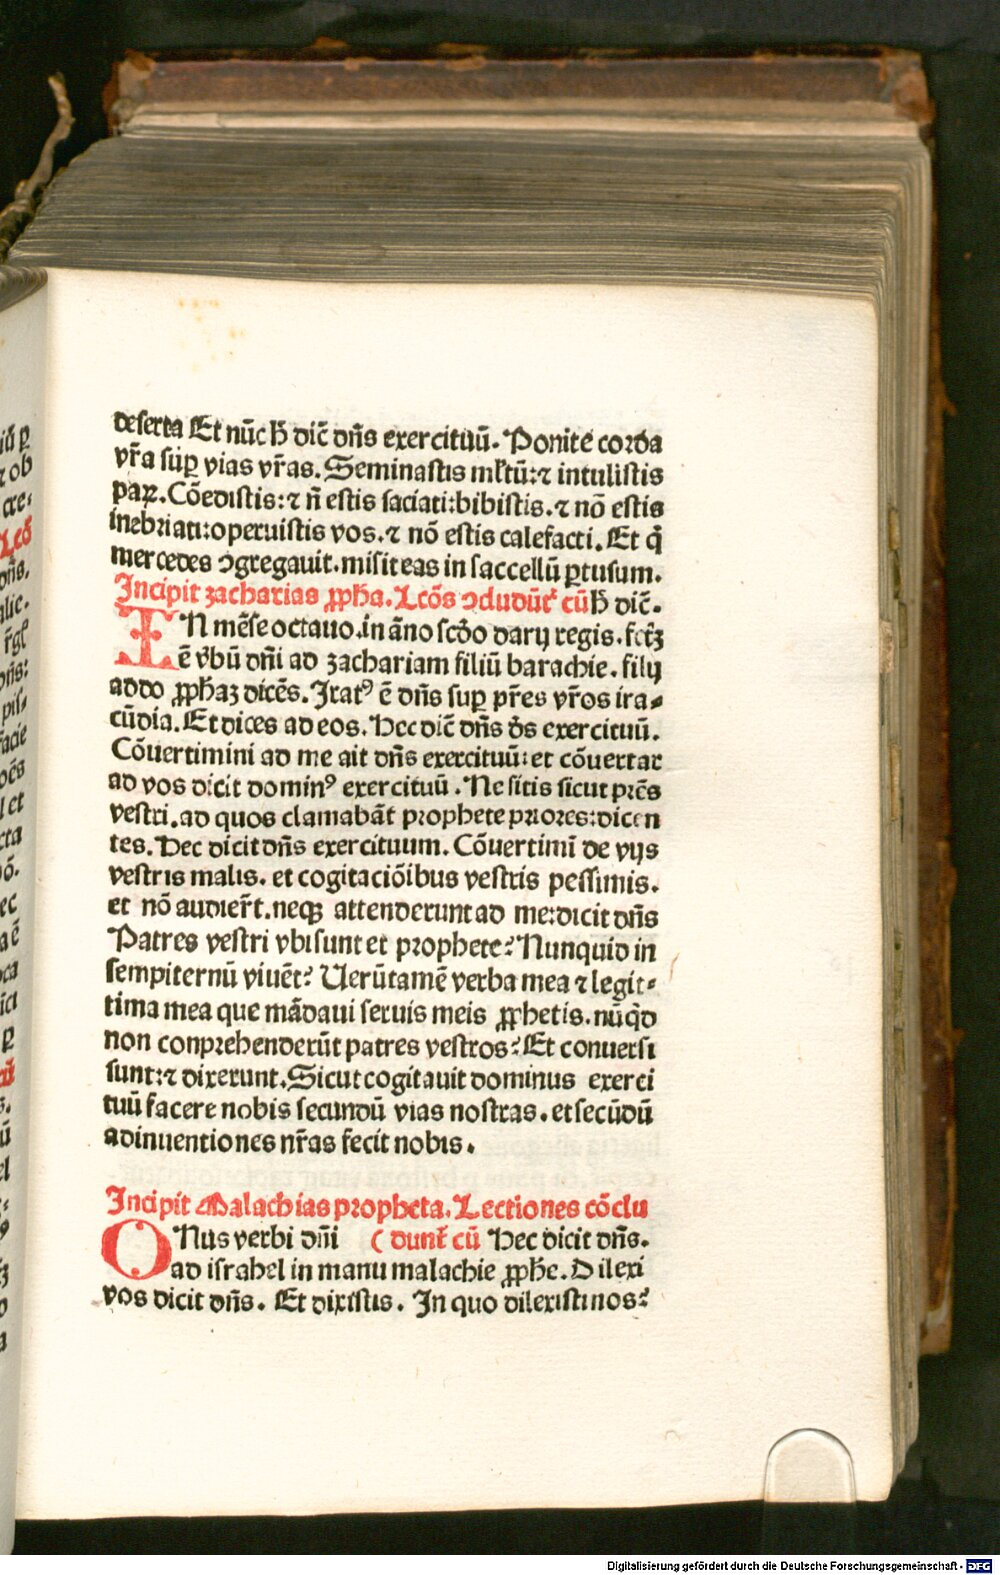 deserta Et nūc h̄ dic̄ dn̄s exercituū. Ponite corda
vr̄a suꝑ vias vr̄as. Seminastis ml̄tū:⁊ intulistis
paꝝ. Cōedistis:⁊ n̄ estis saciati:bibistis.⁊ nō estis
inebriati:operuistis vos.⁊ nō estis calefacti. Et q̄
mercedes ↄgregauit.misit eas in saccellū ꝑtusum.
Incipit zacharias ꝓph̄a. Lcōs ↄdudūt᷑ cū h̄ dic̄.
IN mēse octauo.in āno scd̄o darij regis.fctꝫ
ē v̄bū dn̄i ad zachariam filiū barachie.filij
addo ꝓph̄aꝫ dicēs. Iratꝰ ē dn̄s suꝑ pr̄es vr̄os ira⸗
cūdia. Et dices ad eos. Hec dic̄ dn̄s d̄s exercituū.
Cōuertimini ad me ait dn̄s exercituū:et cōuertar
ad vos dicit dominꝰ exercituū. Ne sitis sicut pr̄es
vestri.ad quos clamabāt prophete priores:dicen
tes. Hec dicit dn̄s exercituum. Cōuertimī de vijs
vestris malis. et cogitaciōibus vestris pessimis.
et nō audier̄t.neqꝫ attenderunt ad me:dicit dn̄s
Patres vestri vbi sunt et prophete? Nunquid in
sempiternū viuēt? Uerūtamē verba mea ⁊ legit⸗
tima mea que mādaui seruis meis ꝓphetis.nūq̇d
non conprehenderūt patres vestros? Et conuersi
sunt:⁊ dixerunt. Sicut cogitauit dominus exerci
tuū facere nobis secundū vias nostras. et secūdū
adinuentiones nr̄as fecit nobis.
Incipit Malachias propheta. Lectiones cōclu
ONus verbi dn̄i ( dunt᷑ cū Hec dicit dn̄s.
ad israhel in manu malachie ꝓph̄e. Dilexi
vos dicit dn̄s. Et dixistis. In quo dilexisti nos?
Digitalisierung gefördert durch die Deutsche Forschungsgemeinschaft - DFG